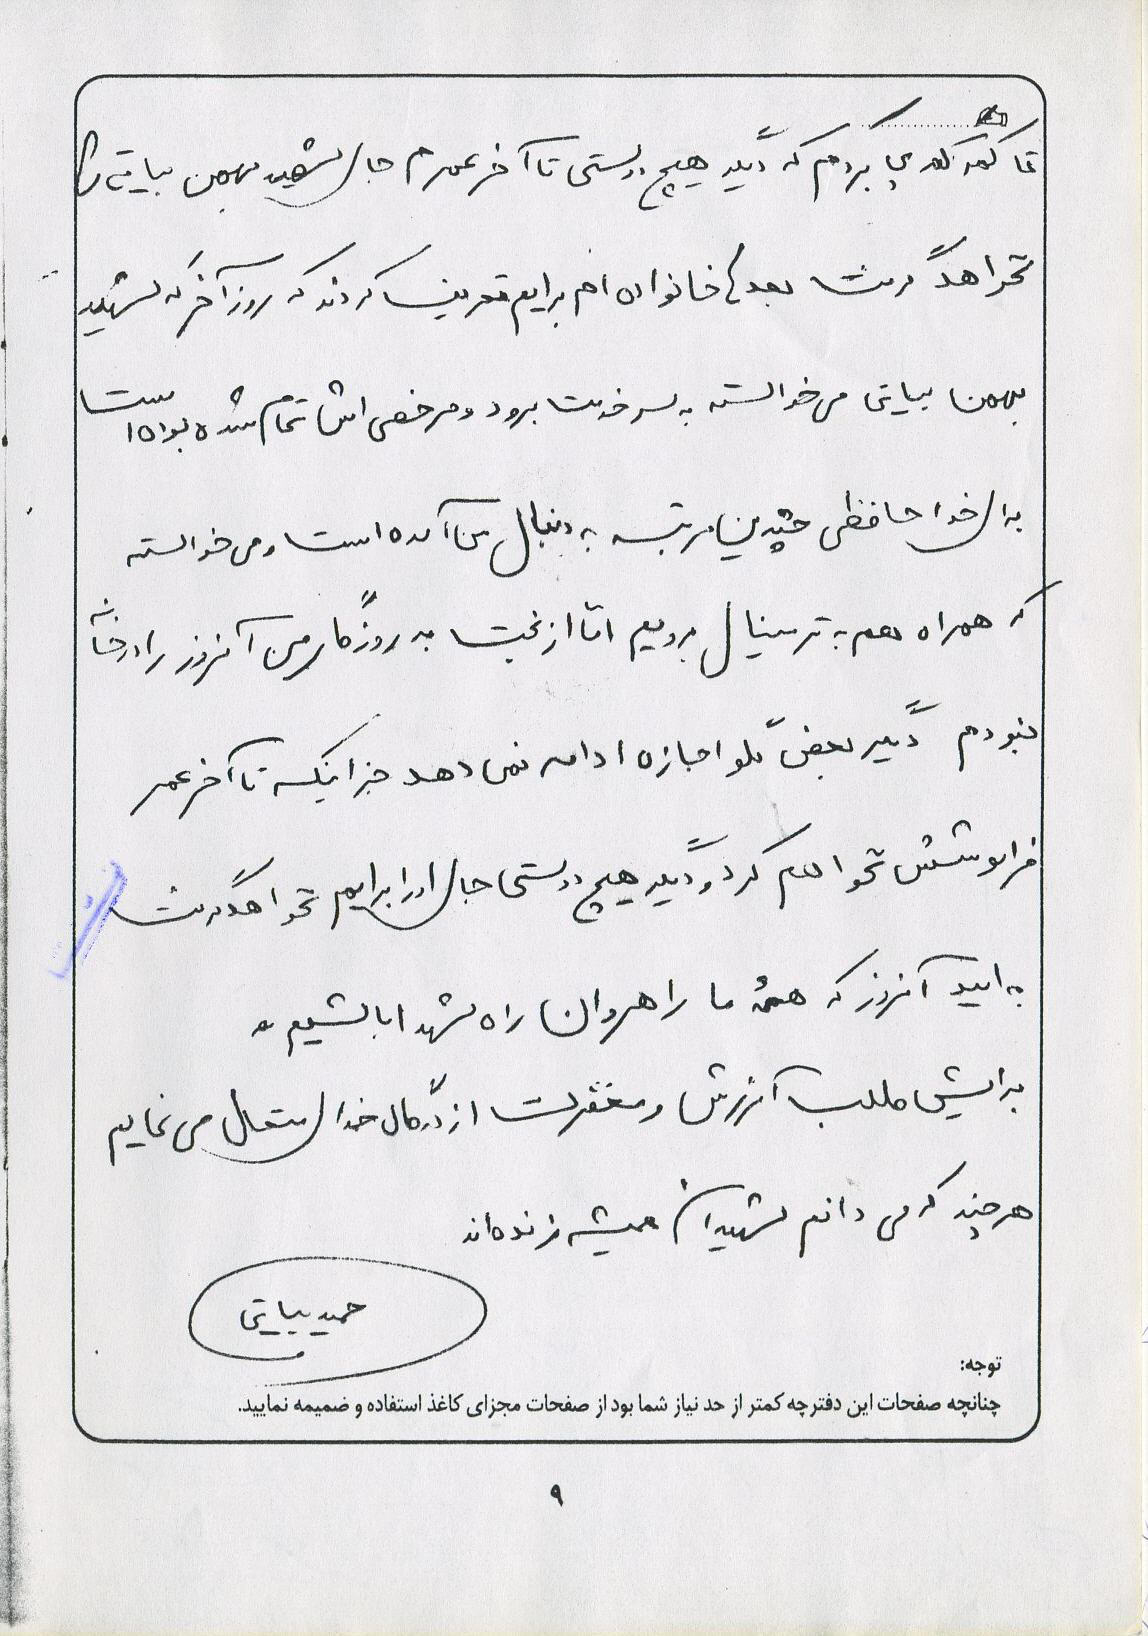 که دیگر هیچ دوستی تا آخر عمرم جای شهید بهمن بیاتی را
نخواهد گرفت بعدها خانواده ام برایم تعریف کردند که روز آخر که شهید
بهمن بیاتی می خواسته به سر خدمت برود و مرخصی اش تمام شده بوده است
برای خداحافظی چندین مرتبه به دنبال من آمده است و می خواسته
که همراه هم به ترمینال برویم اما از بخت بد روزگار من آنروز را در خانه
نبودم دیگر بغض گلو اجازه ادامه نمی دهد جز اینکه تا آخر عمر
فراموشش نخواهم کرد و دیگر هیچ دوستی جای او را برایم نخواهد گرفت
به امید آنروز که همۀ ما راهروان راه شهدا باشیم و
برایش طلب آمرزش و مغفرت از درگاه خدای متعال می نمایم
هر چند که می دانم شهیدان همیشه زنده اند
حمید بیاتی
توجه:
چنانچه صفحات این دفترچه کمتر از حد نیاز شما بود از صفحات مجزای کاغذ استفاده و ضمیمه نمایید.
۹